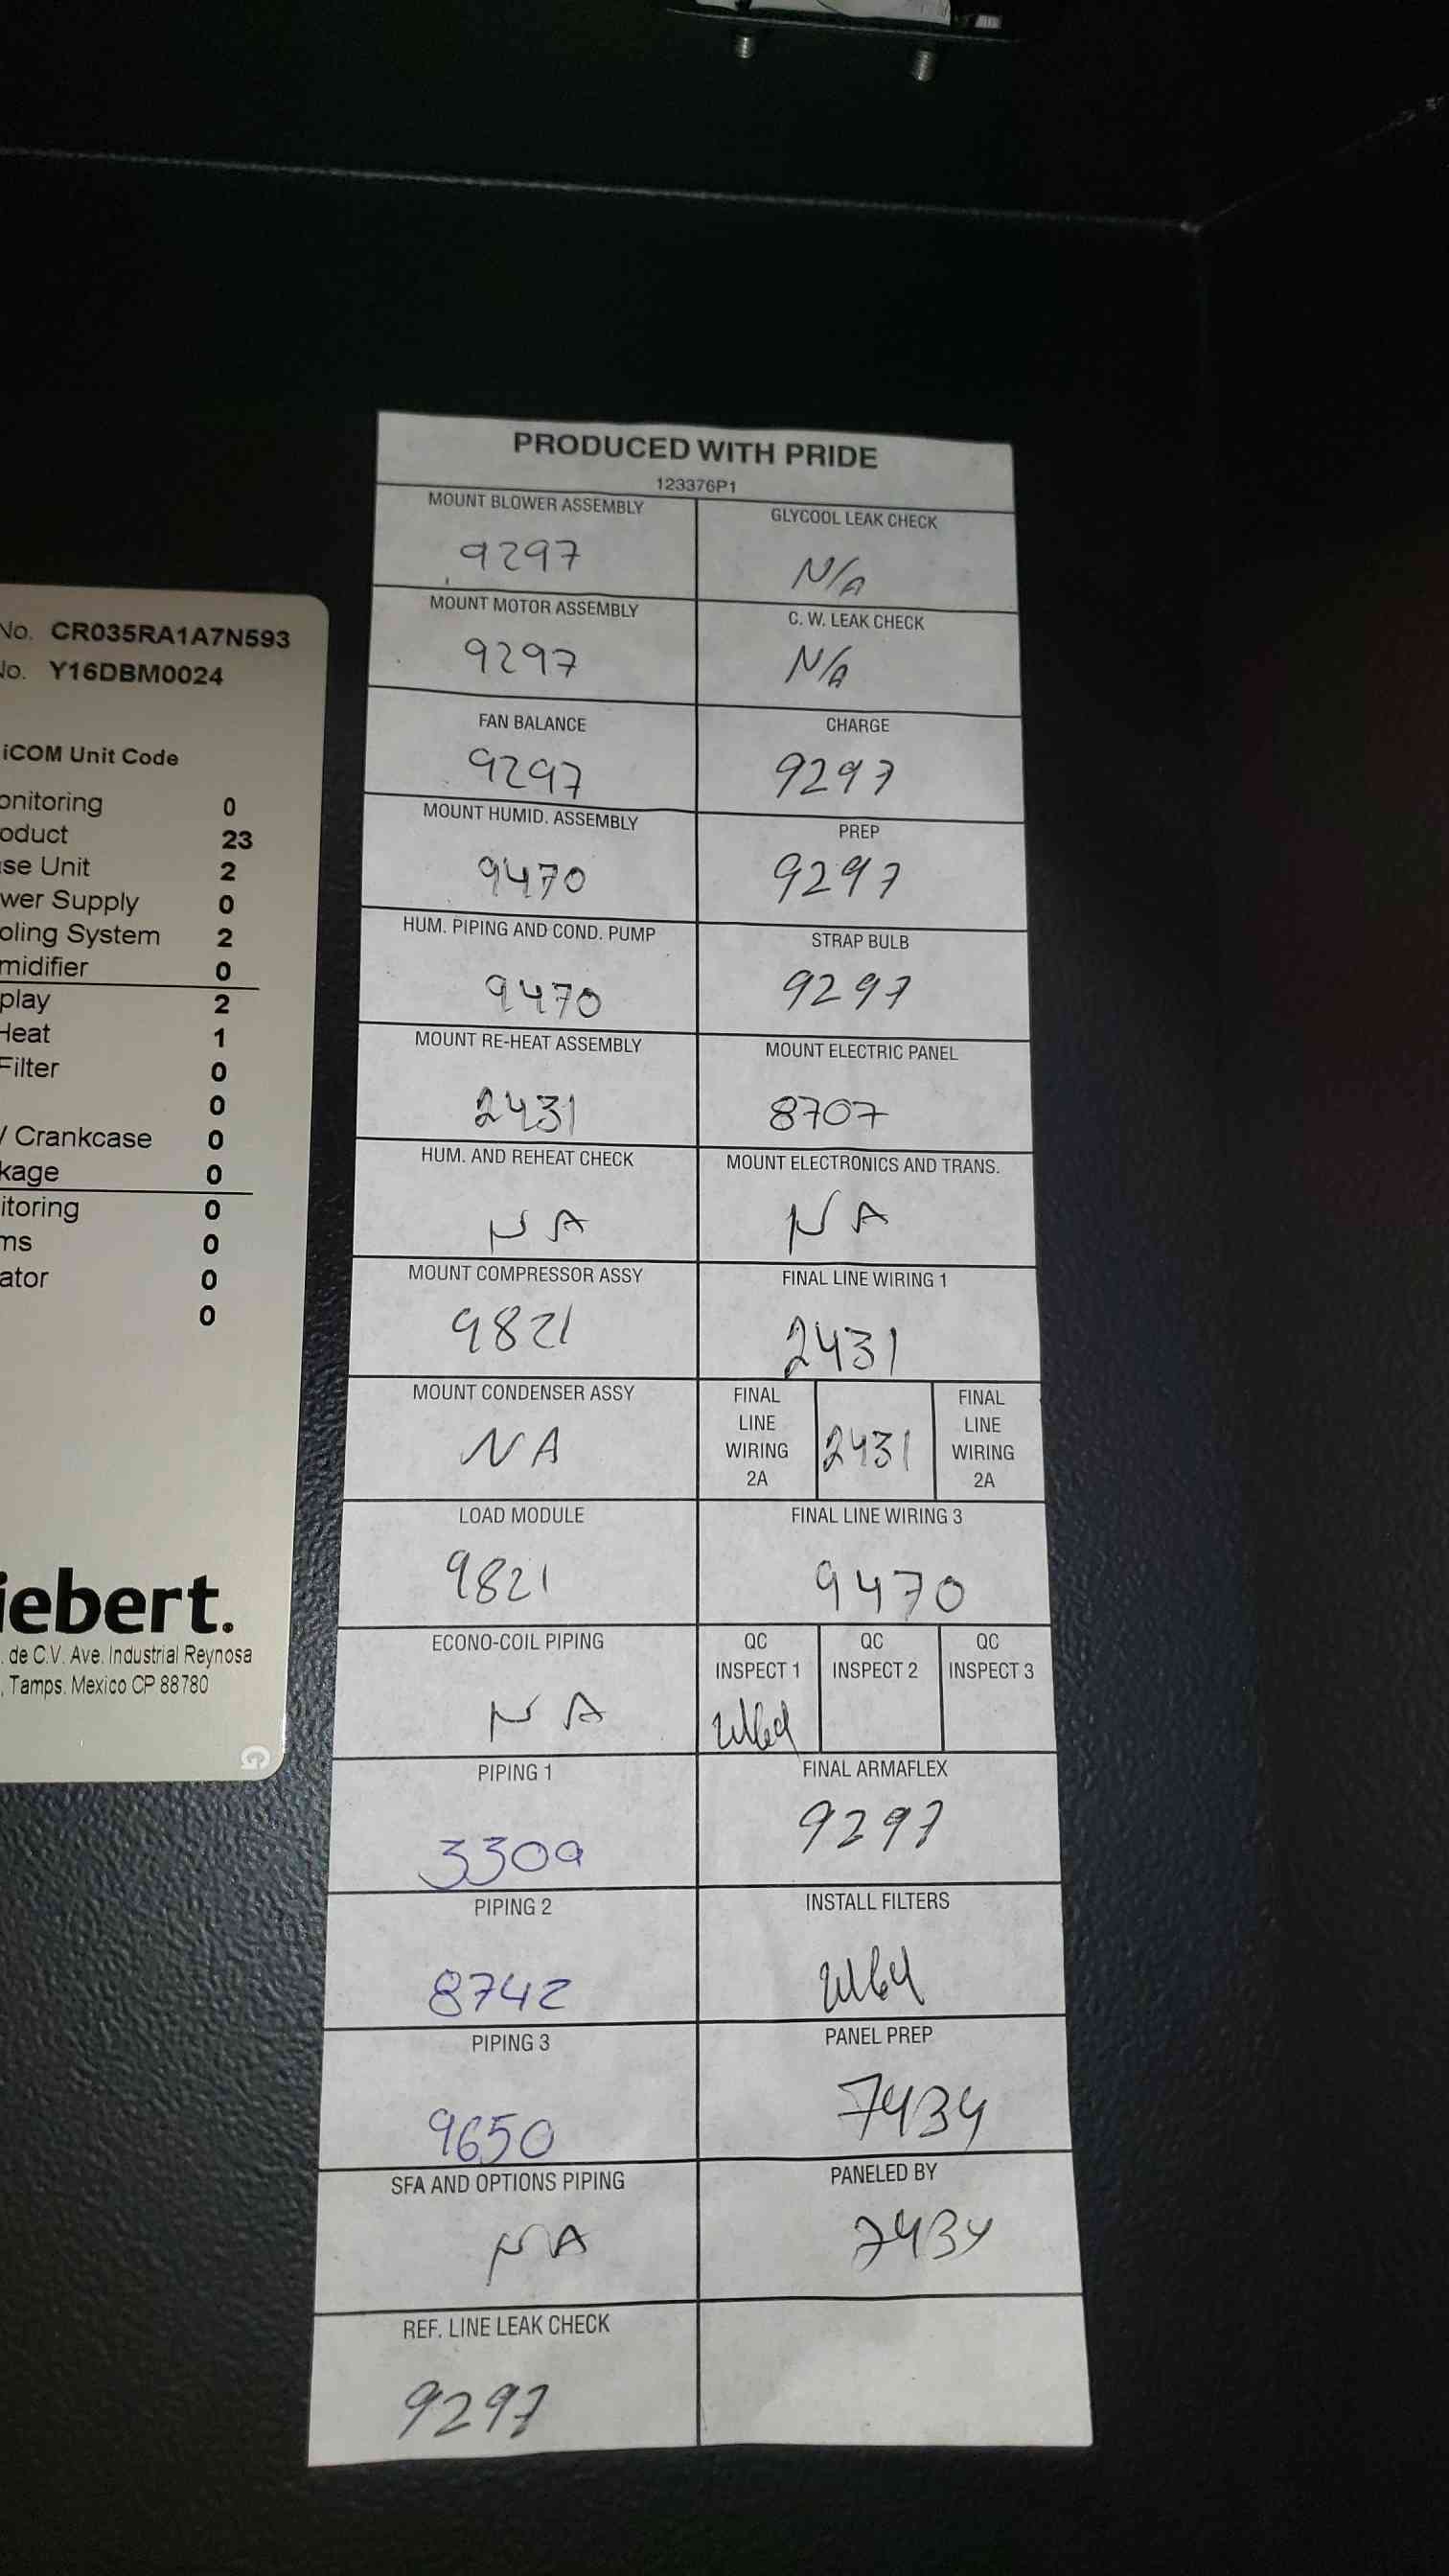 No. CR035RA1A7N593
No. Y16DBM0024
iCOM Unit Code
onitoring 0
oduct 23
se Unit 2
wer Supply 0
oling System 2
midifier 0
play 2
Heat 1
Filter 0
0
/ Crankcase 0
kage 0
itoring 0
ms 0
ator 0
0
iebert.
. de C.V. Ave. Industrial Reynosa
, Tamps. Mexico CP 88780
G
PRODUCED WITH PRIDE
123376P1
MOUNT BLOWER ASSEMBLY
9297
GLYCOOL LEAK CHECK
N/A
MOUNT MOTOR ASSEMBLY
9297
C. W. LEAK CHECK
N/A
FAN BALANCE
9297
CHARGE
9297
MOUNT HUMID. ASSEMBLY
9470
PREP
9297
HUM. PIPING AND COND. PUMP
9470
STRAP BULB
9297
MOUNT RE-HEAT ASSEMBLY
2431
MOUNT ELECTRIC PANEL
8707
HUM. AND REHEAT CHECK
NA
MOUNT ELECTRONICS AND TRANS.
NA
MOUNT COMPRESSOR ASSY
9821
FINAL LINE WIRING 1
2431
MOUNT CONDENSER ASSY
NA
FINAL
LINE
WIRING
2A
2431
FINAL
LINE
WIRING
2A
LOAD MODULE
9821
FINAL LINE WIRING 3
9470
ECONO-COIL PIPING
NA
QC
INSPECT 1
QC
INSPECT 2
QC
INSPECT 3
PIPING 1
3309
FINAL ARMAFLEX
9297
PIPING 2
8742
INSTALL FILTERS
PIPING 3
9650
PANEL PREP
7434
SFA AND OPTIONS PIPING
NA
PANELED BY
7434
REF. LINE LEAK CHECK
9297